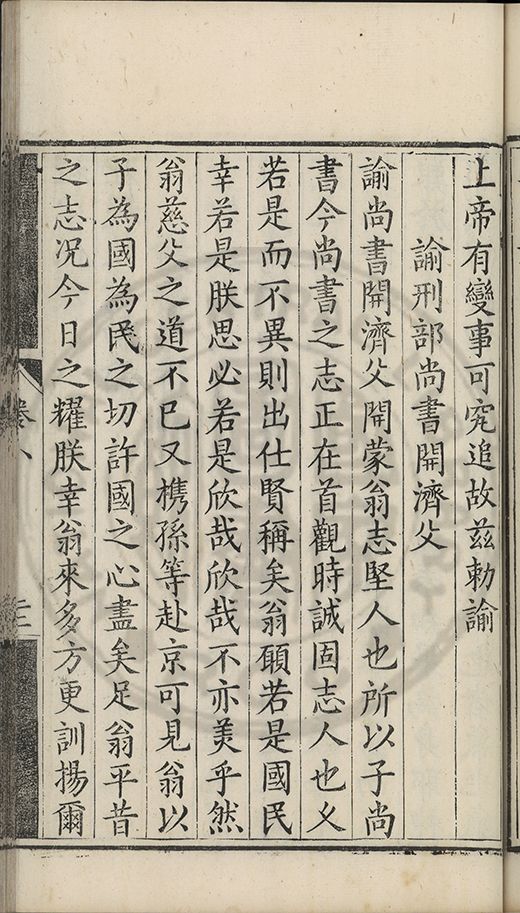 上帝有變事可究追故茲勅諭
諭刑部尚書開濟父
諭尚書開濟父開蒙翁志堅人也所以子尚
書今尚書之志正在首觀時誠固志人也乂
若是而不異則出仕賢稱矣翁願若是國民
幸若是朕思必若是欣哉欣哉不亦美乎然
翁慈父之道不已又携孫等赴京可見翁以
子為國為民之切許國之心盡矣足翁平昔
之志况今日之耀朕幸翁來多方更訓揚爾
卷八